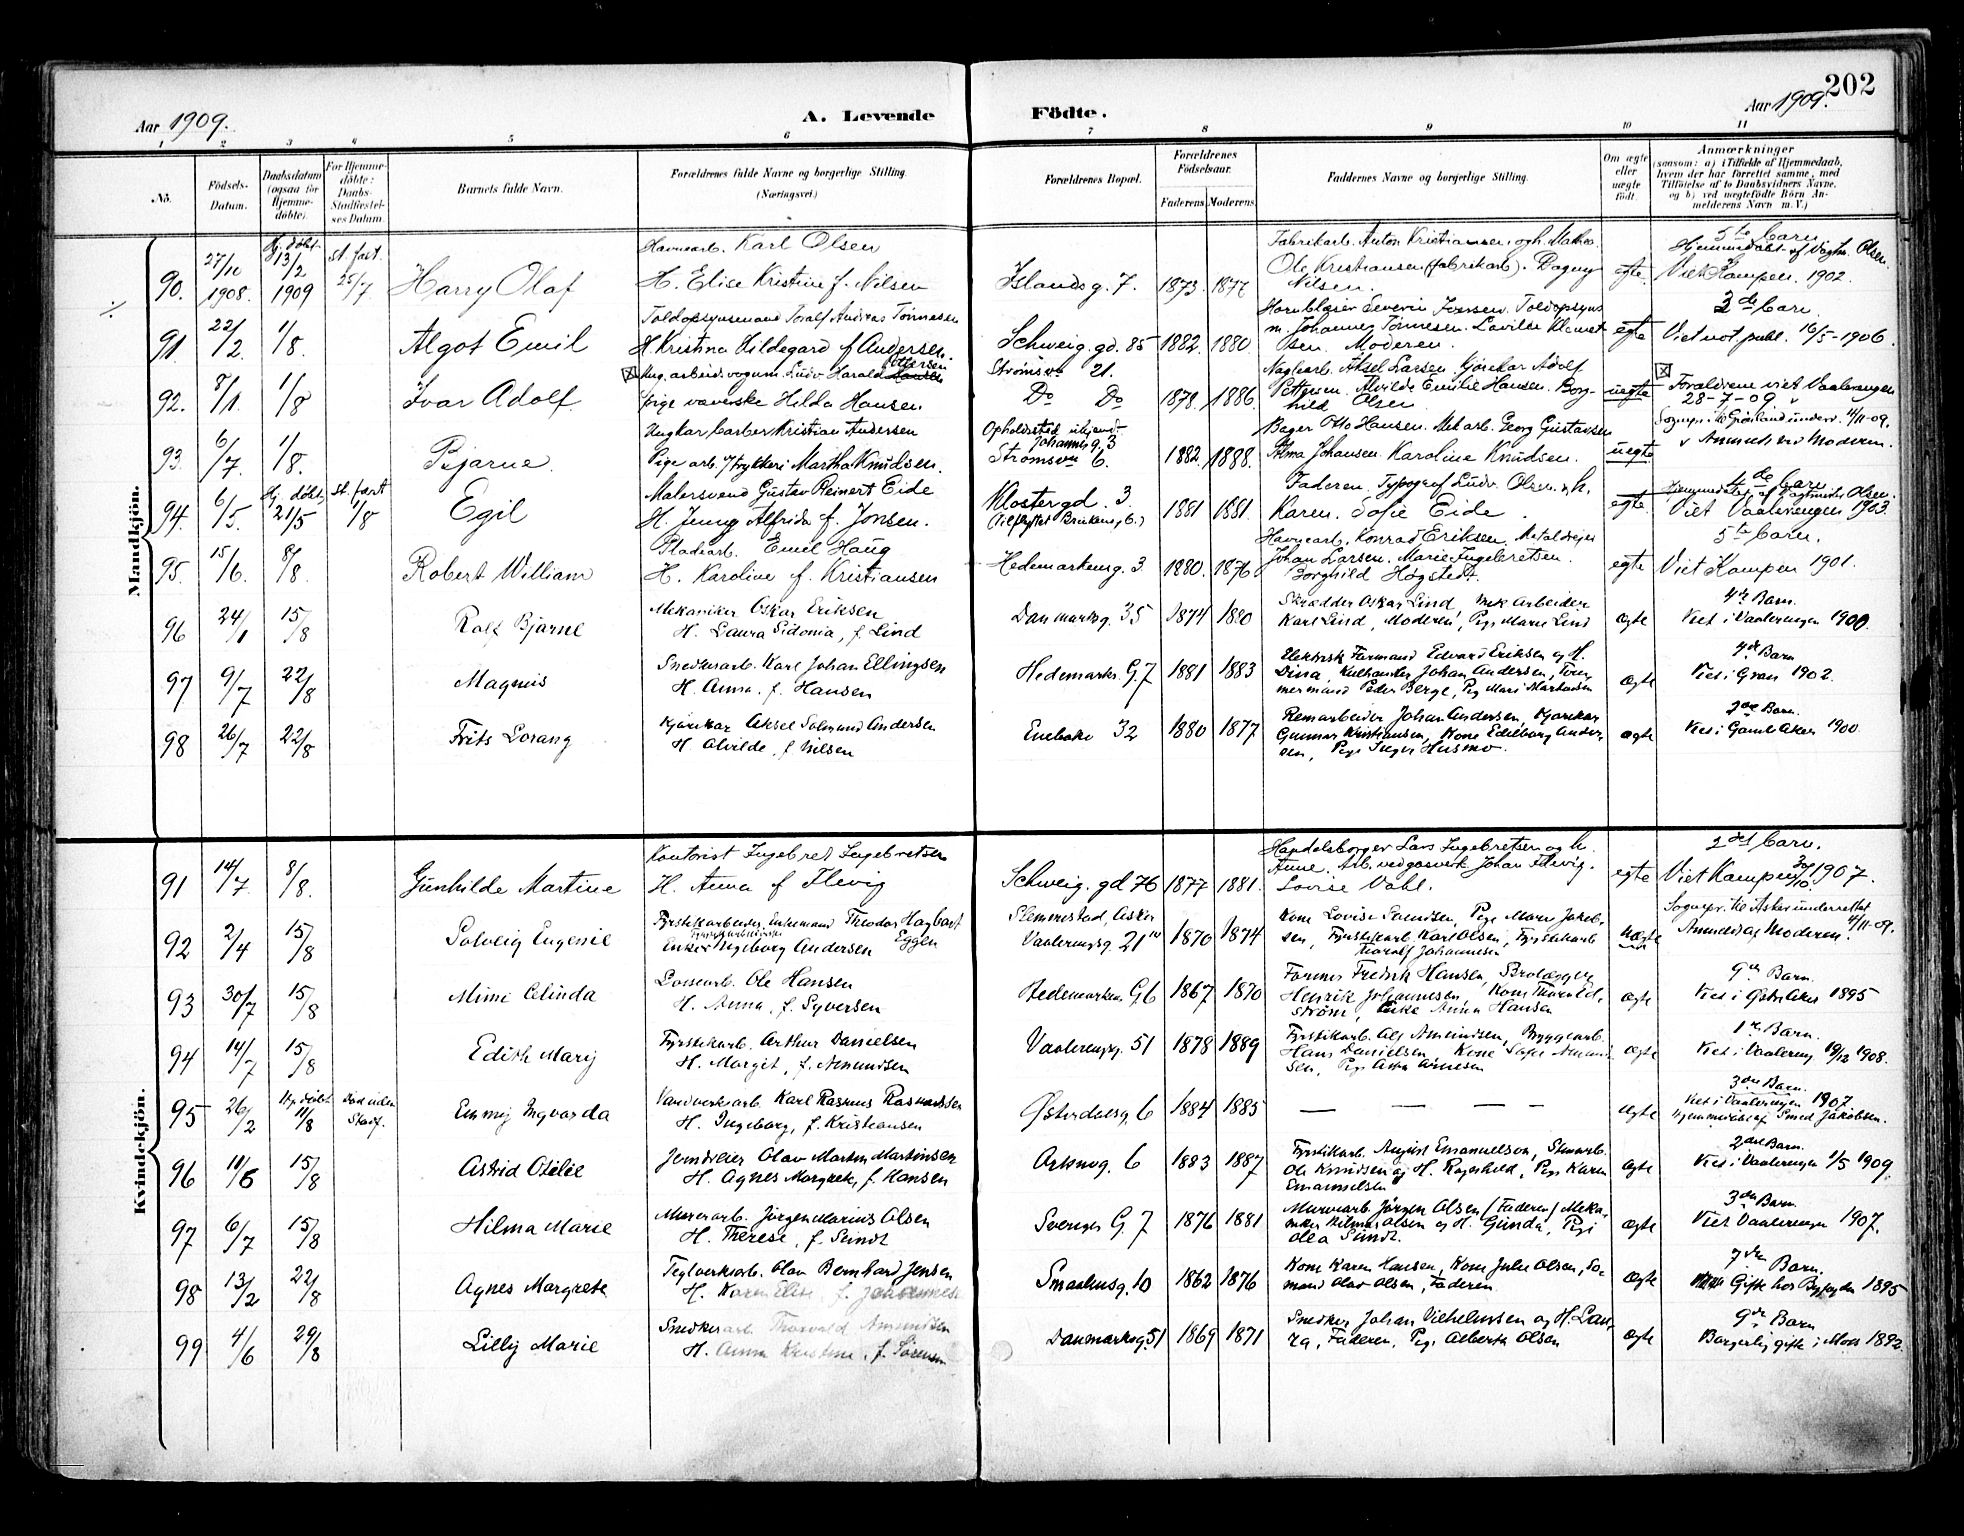 202
Aar 1909.
A. Levende
Födte.
Aar 1909.
1 2 3 4 5 6 7 8 9 10 11
No.
Födsels-
Datum.
Daabsdatum
(ogsaa for
Hjemme-
döbte).
For Hjemme-
döbte:
Daabs-
Stadfæstel-
ses Datum.
Barnets fulde Navn.
Forældrenes fulde Navne og borgerlige Stilling.
(Næringsvei)
Forældrenes Bopæl.
Forældrenes
Födselsaar.
Faderens Moderens
Faddernes Navne og borgerlige Stilling.
Om ægte
eller
uægte
födt.
Anmærkninger
(saasom: a) i Tilfælde af Hjemmedaab,
hvem der har forrettet samme, med
Tilföielse af to Daabsvidners Navne,
og b) ved uægtefödte Börn An-
melderens Navn m. V.)
Mandkjön.
90. 27/10 1908. Hj. döbt 13/2 1909 st. fæst. 25/7 Harry Olaf
Havnearb. Karl Olsen
H. Elise Kristine f. Nilsen
Islandsg. 7. 1873. 1877
Fabrikarb. Anton Kristiansen og h. Mathea.
Ole Kristiansen (fabrikarb). Dagny
Nilsen.
egte
5te barn
Hjemmedöbt af Vagtm. Olsen.
Viet Kampen 1902.
91 22/2. 1/8. Algot Emil
Toldopsynsmand Toralf Andreas Tönnesen
H. Kristina Hildegard f Andersen.
Schweig. gd. 85 1882. 1880.
Hornblæser Severin Iversen. Toldopsyns
m. Johannes Tönnesen. Lovilde Klemet
sen. Moderen.
egte
3de barn.
Viet not. publ. 16/5-1906.
92. 8/1. 1/8 Ivar Adolf
Ung. arbeid. vognm. Ludv Harald Hansen Ottersen
pige væverske Hilda Hansen
Strömsvn 21.
Do Do 1878. 1886.
Naglearb. Aksel Larsen. Gjörekar Adolf
Pettersen. Alvilde Emilie Hansen. Borg-
hild Olsen
uegte
Forældrene viet Vaalerengen
28-7-09
93. 6/7. 1/8. Bjarne.
Ungkar barber Kristian Andersen
Pige arb. i trykkeri Martha Knudsen.
Opholdssted ukjendt
Johannesg. 3
Strömsvn 6. 1882. 1888.
Bager Otto Hansen. Met. arb. Georg Gustavsen
Alma Johansen. Karoline Knudsen.
uegte
Sognepr. i Grönland underr. 4/11-09.
Anmeldt ved Moderen.
94. 6/5. Hj. döbt 21/5 st. fæst 1/8 Egil
Malersvend Gustav Reinert Eide
H. Jenny Alfrida f. Jonsen.
Klostergd. 3. 1881 1881.
Faderen. Typograf Ludv. Olsen. h.
Karen. Sofie Eide.
egte.
4de barn
Hjemmedöbt af Vagtmester Olsen.
Viet Vaalerengen 1903.
95. 15/6. 8/8. Robert William
Pladearb. Emil Haug
H. Karoline f. Kristiansen
Hedemarkeng. 3 1880. 1876
Havnearb. Konrad Eriksen. Metaldreier
Johan Larsen. Marie Ingebretsen.
Borghild Högstedt.
egte
5te barn.
Viet Kampen 1901.
96 24/1 15/8 Rolf Bjarne
Mekaniker Oskar Eriksen
H. Laura Sidonia, f. Lind
Danmarksg. 35 1874 1880
Skrædder Oskar Lind, Mek Arbeider
Karl Lind, Moderen, Pige Marie Lind
ægte
4de Barn.
Viet i Vaalerengen 1900.
97 9/7 22/8 Magnus
Snedkerarb. Karl Johan Ellingsen
H. Anna. f. Hansen
Hedemarks. G. 7 1881 1883
Elektrisk Formand Edvard Eriksen og H.
Dina, Kulhandler Johan Andersen, Töm-
mermand Peder Berge, Pige Mari Martinsen
ægte
4de Barn
Viet i Gran 1902.
98 26/7 22/8 Frits Lorang
Kjörekar Aksel Salmund Andersen
H. Alvilde, f Nilsen
Enebakv 32 1880 1877
Remarbeider Johan Andersen, Kjörekar
Gunnar Kristiansen, Kone Edelborg Ander-
sen, Pige Inger Husmo.
ægte
2de Barn.
Viet i Gamle Aker 1900.
Kvindekjön.
91 14/7. 8/8. Gunhilde Martine
Kontorist Ingebret Ingebretsen
H. Anna f Flevig
Schweig. gd 76 1877 1881.
Handelsborger Lars Ingebretsen og h.
Anne. Arb. ved gasverk Johan Flevig.
Lovise Dahl.
egte
2det barn.
Viet Kampen 30/10 1907.
92 2/4 15/8 Solveig Eugenie
Fyrstikarbeider, Enkemand Theodor Hagbart
Eggen
Enke Ingeborg Andersen
Slemmestad, Asker
Vaalerengg. 21 1870 1874
Kone Lovise Amundsen, Pige Marie Jakob-
sen, Fyrstikarb. Karl Olsen, Fyrstikarb
Thoralf Johannesen
uægte
Sognepr. til Asker underrettet
4/11-09.
Anmeldt af Moderen.
93 30/7 15/8 Mimi Alinda
Lossearb. Ole Hansen
H. Anna, f. Syversen
Hedemarken G. 6 1867 1870
Former Fredrik Hansen, Brolægger
Henrik Johannesen, Kone Thora Lid-
ström, Enke Anna Hansen
ægte
9de Barn
Viet i Östre Aker 1895
94 14/7 15/8 Edith Mary
Fyrstikarb. Arthur Danielsen
H. Margit, f. Amundsen
Vaalerengg. 51 1878 1889
Fyrstikarb. Alf Amundsen, Bryggearb.
Hans Danielsen, Kone Sofie Amund
sen, Pige Asta Arnesen
ægte
1ste Barn.
Viet i Vaalereng 19/12 1908.
95 26/2 Hj. döbt 11/8 Död uden Stadf. Emmy Ingvarda
Vandverksarb. Karl Rasmus Rasmussen
H. Ingeborg, f. Kristiansen
Österdalsg. 6 1884 1885 — — — —
ægte
3die Barn.
Viet i Vaalerengen 1907.
Hjemmedöbt af Smed Jakobsen.
96 11/6 15/8 Astrid Otilie
Jerndreier Olav Martin Martinsen
H. Agnes Margrete, f. Hansen
Arknog. 6 1883 1887
Fyrstikarb. August Emanuelson, Stenarb.
Ole Knudsen og H. Ragnhild, Pige Karen
Emanuelsen
ægte
2det Barn.
Viet i Vaalerengen 1/5 1909.
97 6/7 15/8 Hilma Marie
Murerarb. Jörgen Marius Olsen
H. Therese, f. Sundt
Sverges G. 7 1876 1881
Murerarb. Jörgen Olsen (Faderen) Meka-
niker Hilmar Olsen og H. Gunda, Pige
Olea Sundt.
ægte
3die Barn.
Viet Vaalerengen 1907.
98 13/2 22/8 Agnes Margrete
Teglverksarb. Olav Bernhard Jensen
H. Karen Elise, f. Johannesen
Smaalensg. 10 1862 1876
Kone Karen Hansen, Kone Julie Olsen, Sö-
mand Olaf Olsen, Faderen.
ægte
7de Barn.
Gifte hos Byfogden 1895
99 4/6 29/8 Lilly Marie
Snedkerarb Thorvald Amundsen
H. Anna Kristine, f. Sörensen
Danmarksg. 51 1869 1871
Snedker Johan Vilhelmsen og H. Lau-
ra, Faderen, Pige Alberta Olsen
ægte
9de Barn
Borgerlig gifte i Moss 1892.